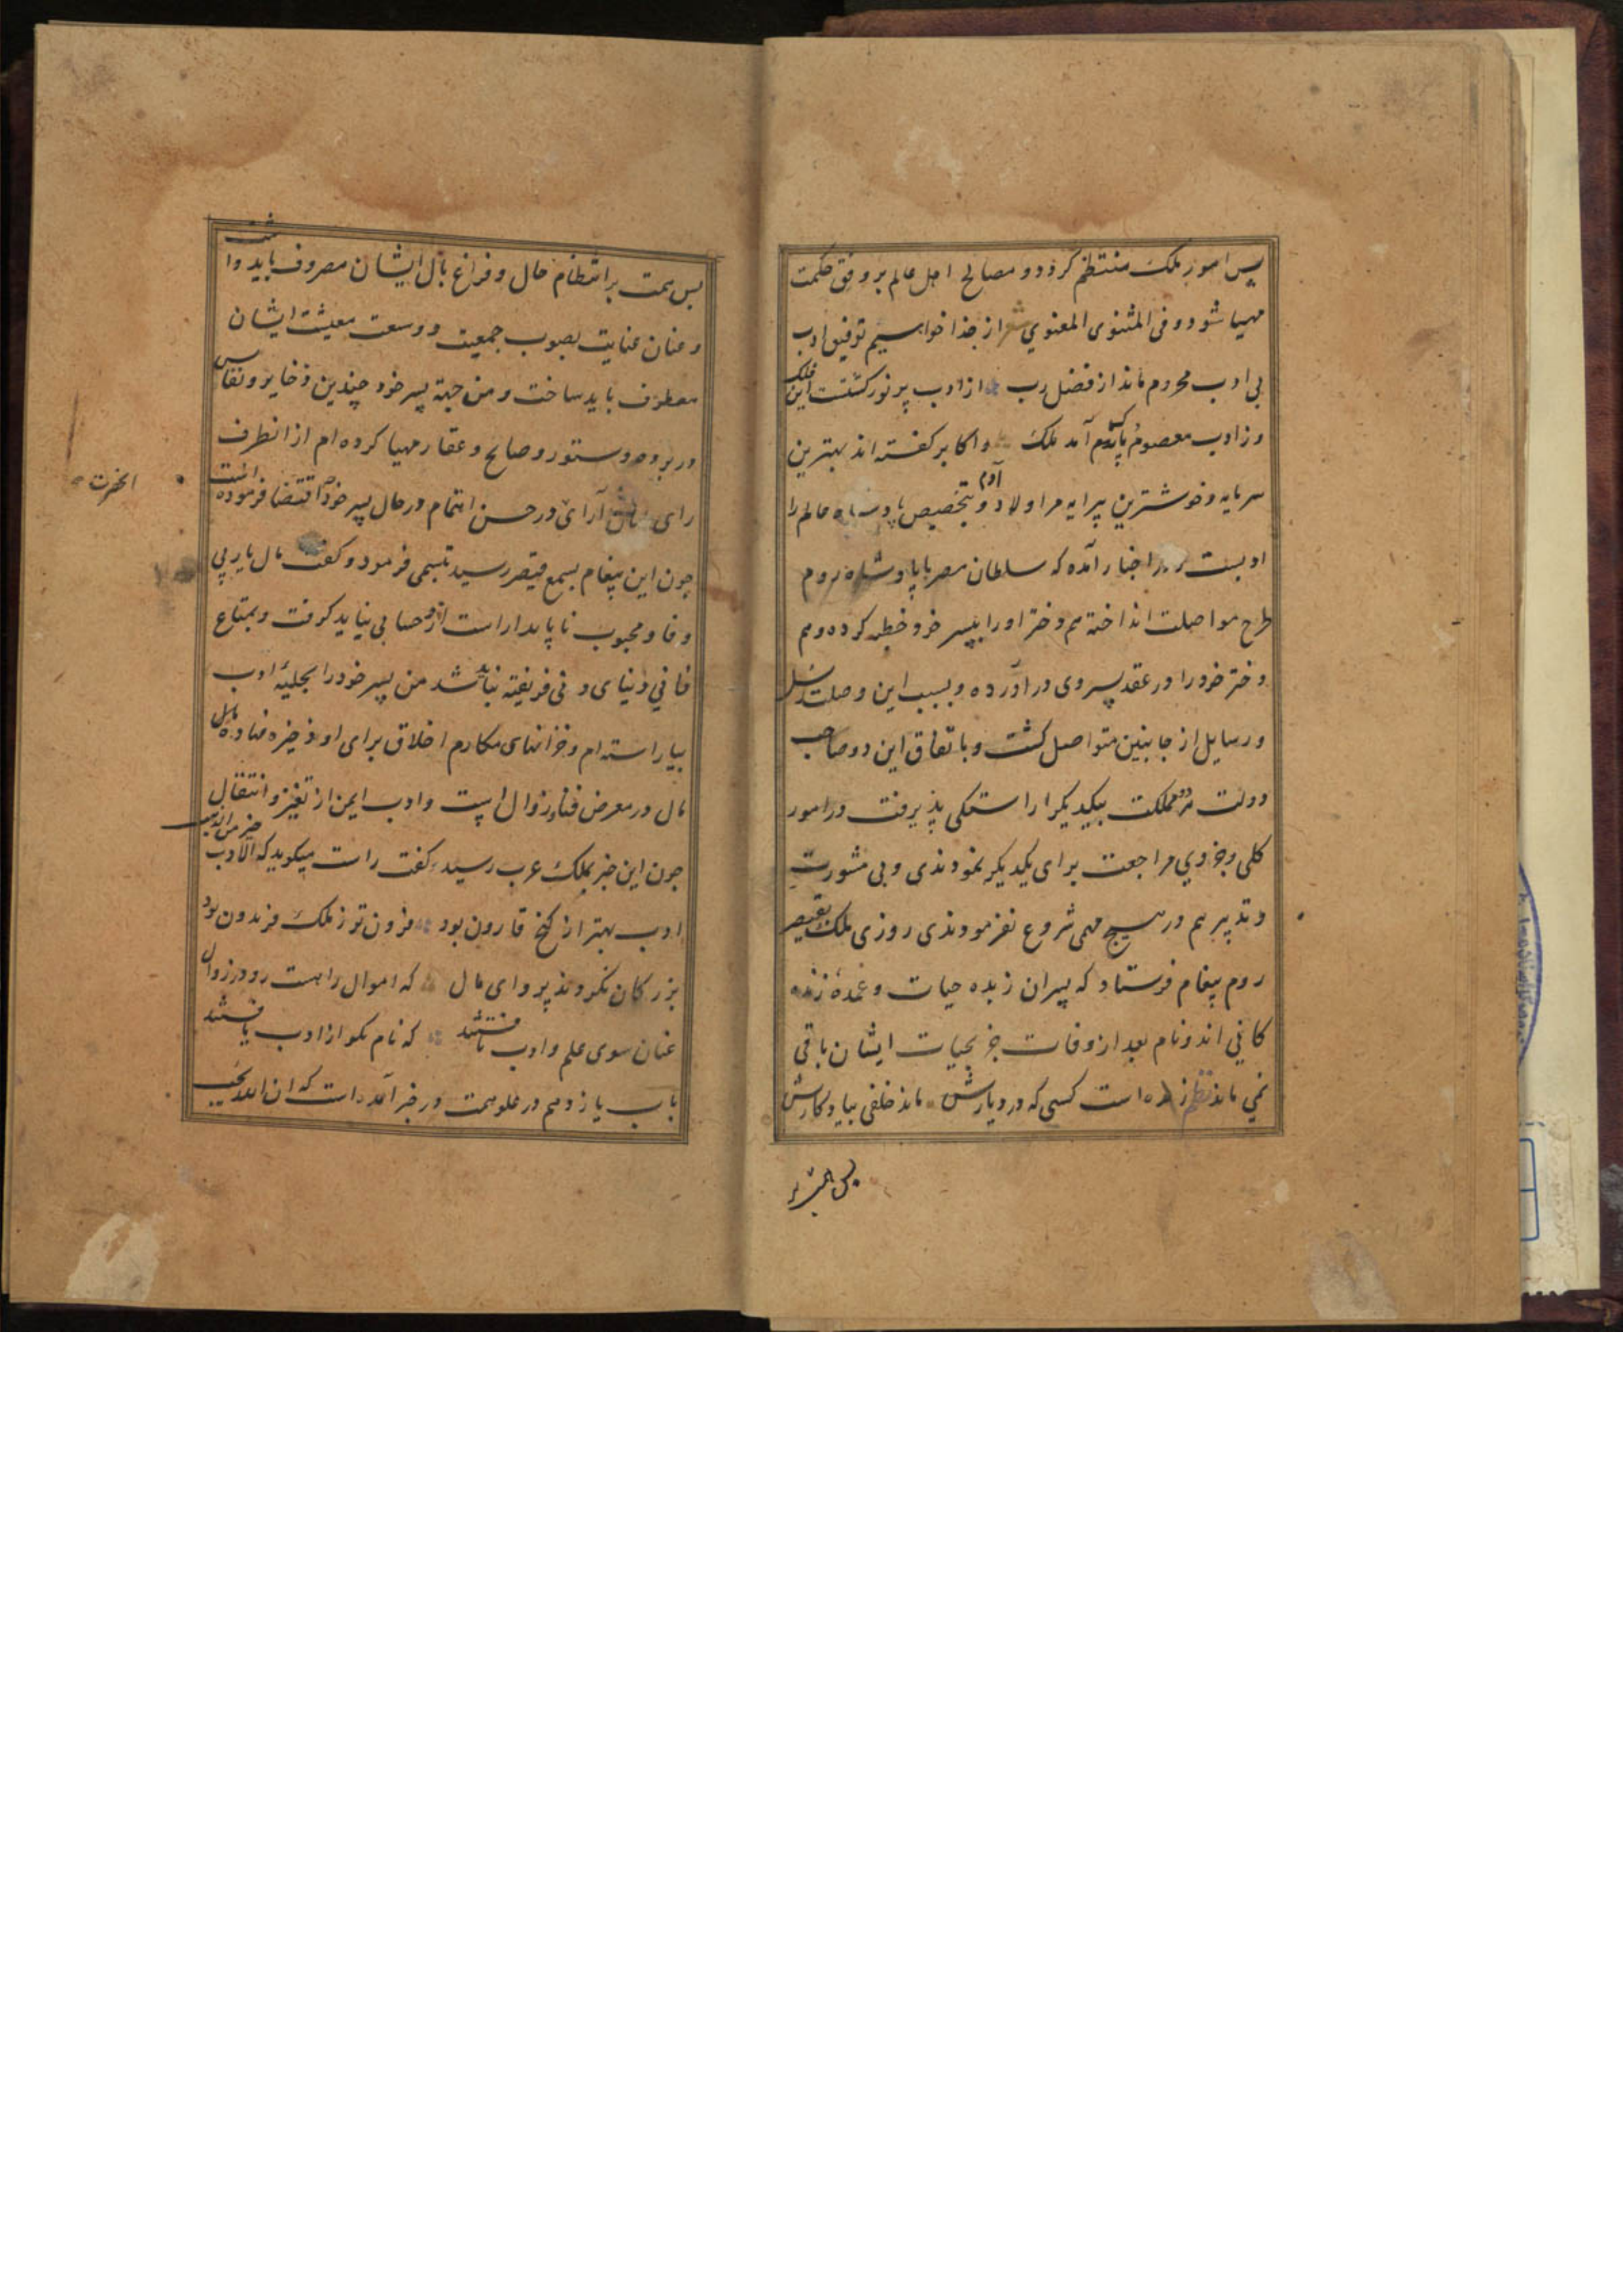 پس امور ملک منتظم کردد و مصالح اهل عالم بر وفق حکمت
مهیا شود و فی المثنوی المعنوی شعر از خدا خواهیم توفیق ادب
بی ادب محروم ماند از فضل رب از ادب پر نور کشتت این فلک
وز ادب معصوم و پاک آمد ملک و اکابر کفته اند بهترین
سرمایه و خوشترین پیرایه مر اولاد آدم و بتخصیص پادشاه عالم را
ادبست در اخبار آمده که سلطان مصر با پادشاه روم
طرح مواصلت انداخته هم دختر او را بپسر خود خطبه کرده و هم
دختر خود را در عقد پسر وی در آورده و بسبب این وصلت رسل
و رسایل از جانبین متواصل کشت و باتفاق این دو صاحب
دولت هر دو مملکت بیکدیکر آراستکی پذیرفت در امور
کلی و جزوی مراجعت برای یکدیکر نمودندی و بی مشورت
و تدبیر هم در هیچ مهمی شروع نفرمودندی روزی ملک بقیصر
روم پیغام فرستاد که پسران زبده حیات و عمدهٔ زنده
کانی اند و نام بعد از وفات جز بحیات ایشان باقی
نمی ماند نظم زنده است کسی که در دیارش ماند خلفی بیادکارش
بس همت بر
بس همت بر انتظام حال و فراغ بال ایشان مصروف باید داشت
و عنان عنایت بصوب جمعیت و وسعت معیشت ایشان
معطوف باید ساخت و من جهة پسر خود چندین ذخایر و نفایس
و ستور و صایح و عقار مهیا کرده ام از انطرف
الحضرت
رای آرای در حسن اهتمام در حال پسر خود چه اقتضا فرموده است
چون این پیغام بسمع قیصر رسید تبسمی فرمود و کفت مال یار بی
وفا و محبوب ناپایدار است ازو حسابی نباید کرفت و بمتاع
فانی دنیای دنی فریفته نباید شد من پسر خود را بحلیهٔ ادب
بیاراسته ام و خزانهای مکارم اخلاق برای او ذخیره نهاده ام
مال در معرض فنا و زوال است و ادب ایمن از تغیر و انتقال
چون این خبر بملک عرب رسید کفت راست میکوید که الادب خیر من الذهب
ادب بهتر از کنج قارون بود فزون تر ز ملک فریدون بود
بزرکان نکردند پروای مال که اموال را هست رو در زوال
عنان سوی علم و ادب تافتند که نام نکو از ادب یافتند
باب یازدهم در علو همت در خبر آمده است که ان الله یحب